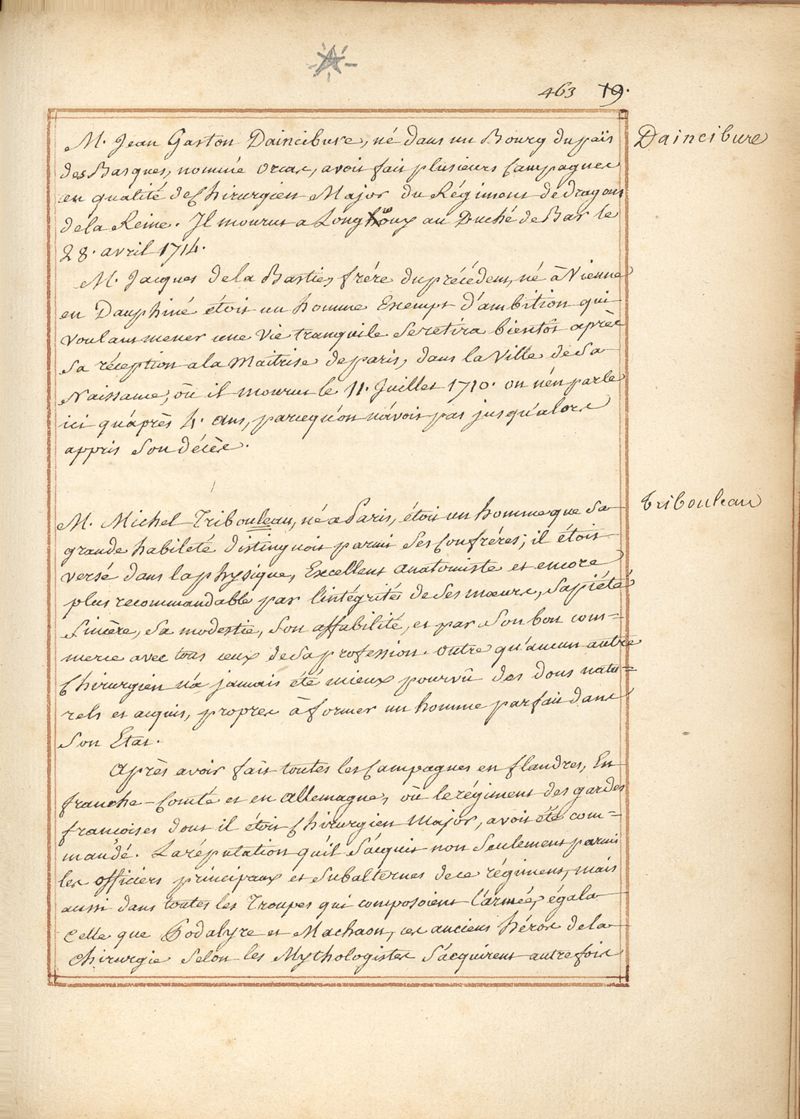 463 19.
M. Jean Gaston Daincibure, né dans un Bourg du païs
Daincibure
des Basques, nommé Orcax, avoit fait plusieurs Campagnes
en qualité de Chirurgien Major du Régiment de dragons
de la Reine. Il mourut a Longhoux au Duché de Bar le
28. avril 1714.
M. Jacques de la Bastie, frére du précédent, né à Vienne
en Dauphiné étoit un homme Exempt d'ambition qui
voulant mener une vie tranquile se retira bientôt après
sa réception a la Maitrise de paris, dans la Ville de Sa
Naissance, où il mourut le 11. Juillet 1710. on n'en parle
ici qu'après 4. ans, parcequ'on n'avoit pas jusqu'alors
appris Son décès.
M. Michel Tribouleau, né a Paris, étoit un homme que Sa
Tribouleau
grande habileté distinguoit parmi Ses Confréres; il étoit
versé dans la physique, Excellent anatomiste et encore
plus recommandable par l'intégrité de Ses mœurs, Sa piété
Sincère, Sa modestie, Son affabilité, et par Son bon com=
merce avec tous ceux de Sa profession. outre qu'aucun autre
Chirurgien n'a jamais été mieux pourvû des dons natu=
rels et acquis, propres à former un homme parfait dans
Son Etat.
Après avoir fait toutes les Campagnes en flandres, En
franche-Comté et en Allemagne, où le régiment des gardes
francoises dont il étoit Chirurgien Major, avoit été com=
mandé. La réputation qu'il S'acquit non Seulement parmi
les officiers principaux et Subalternes de ce régiment, mais
aussi dans toutes les Troupes qui composoient l'armée, égala
Celle que Podalyre et Machaon, ces anciens héros de la
Chirurgie Selon les Mythologistes S'acquirent autre fois